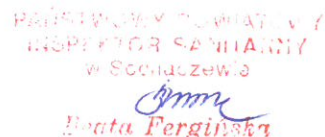 PAŃSTWOWY POWIATOWY
INSPEKTOR SANITARNY
w Sochaczewie
Beata Fergińska